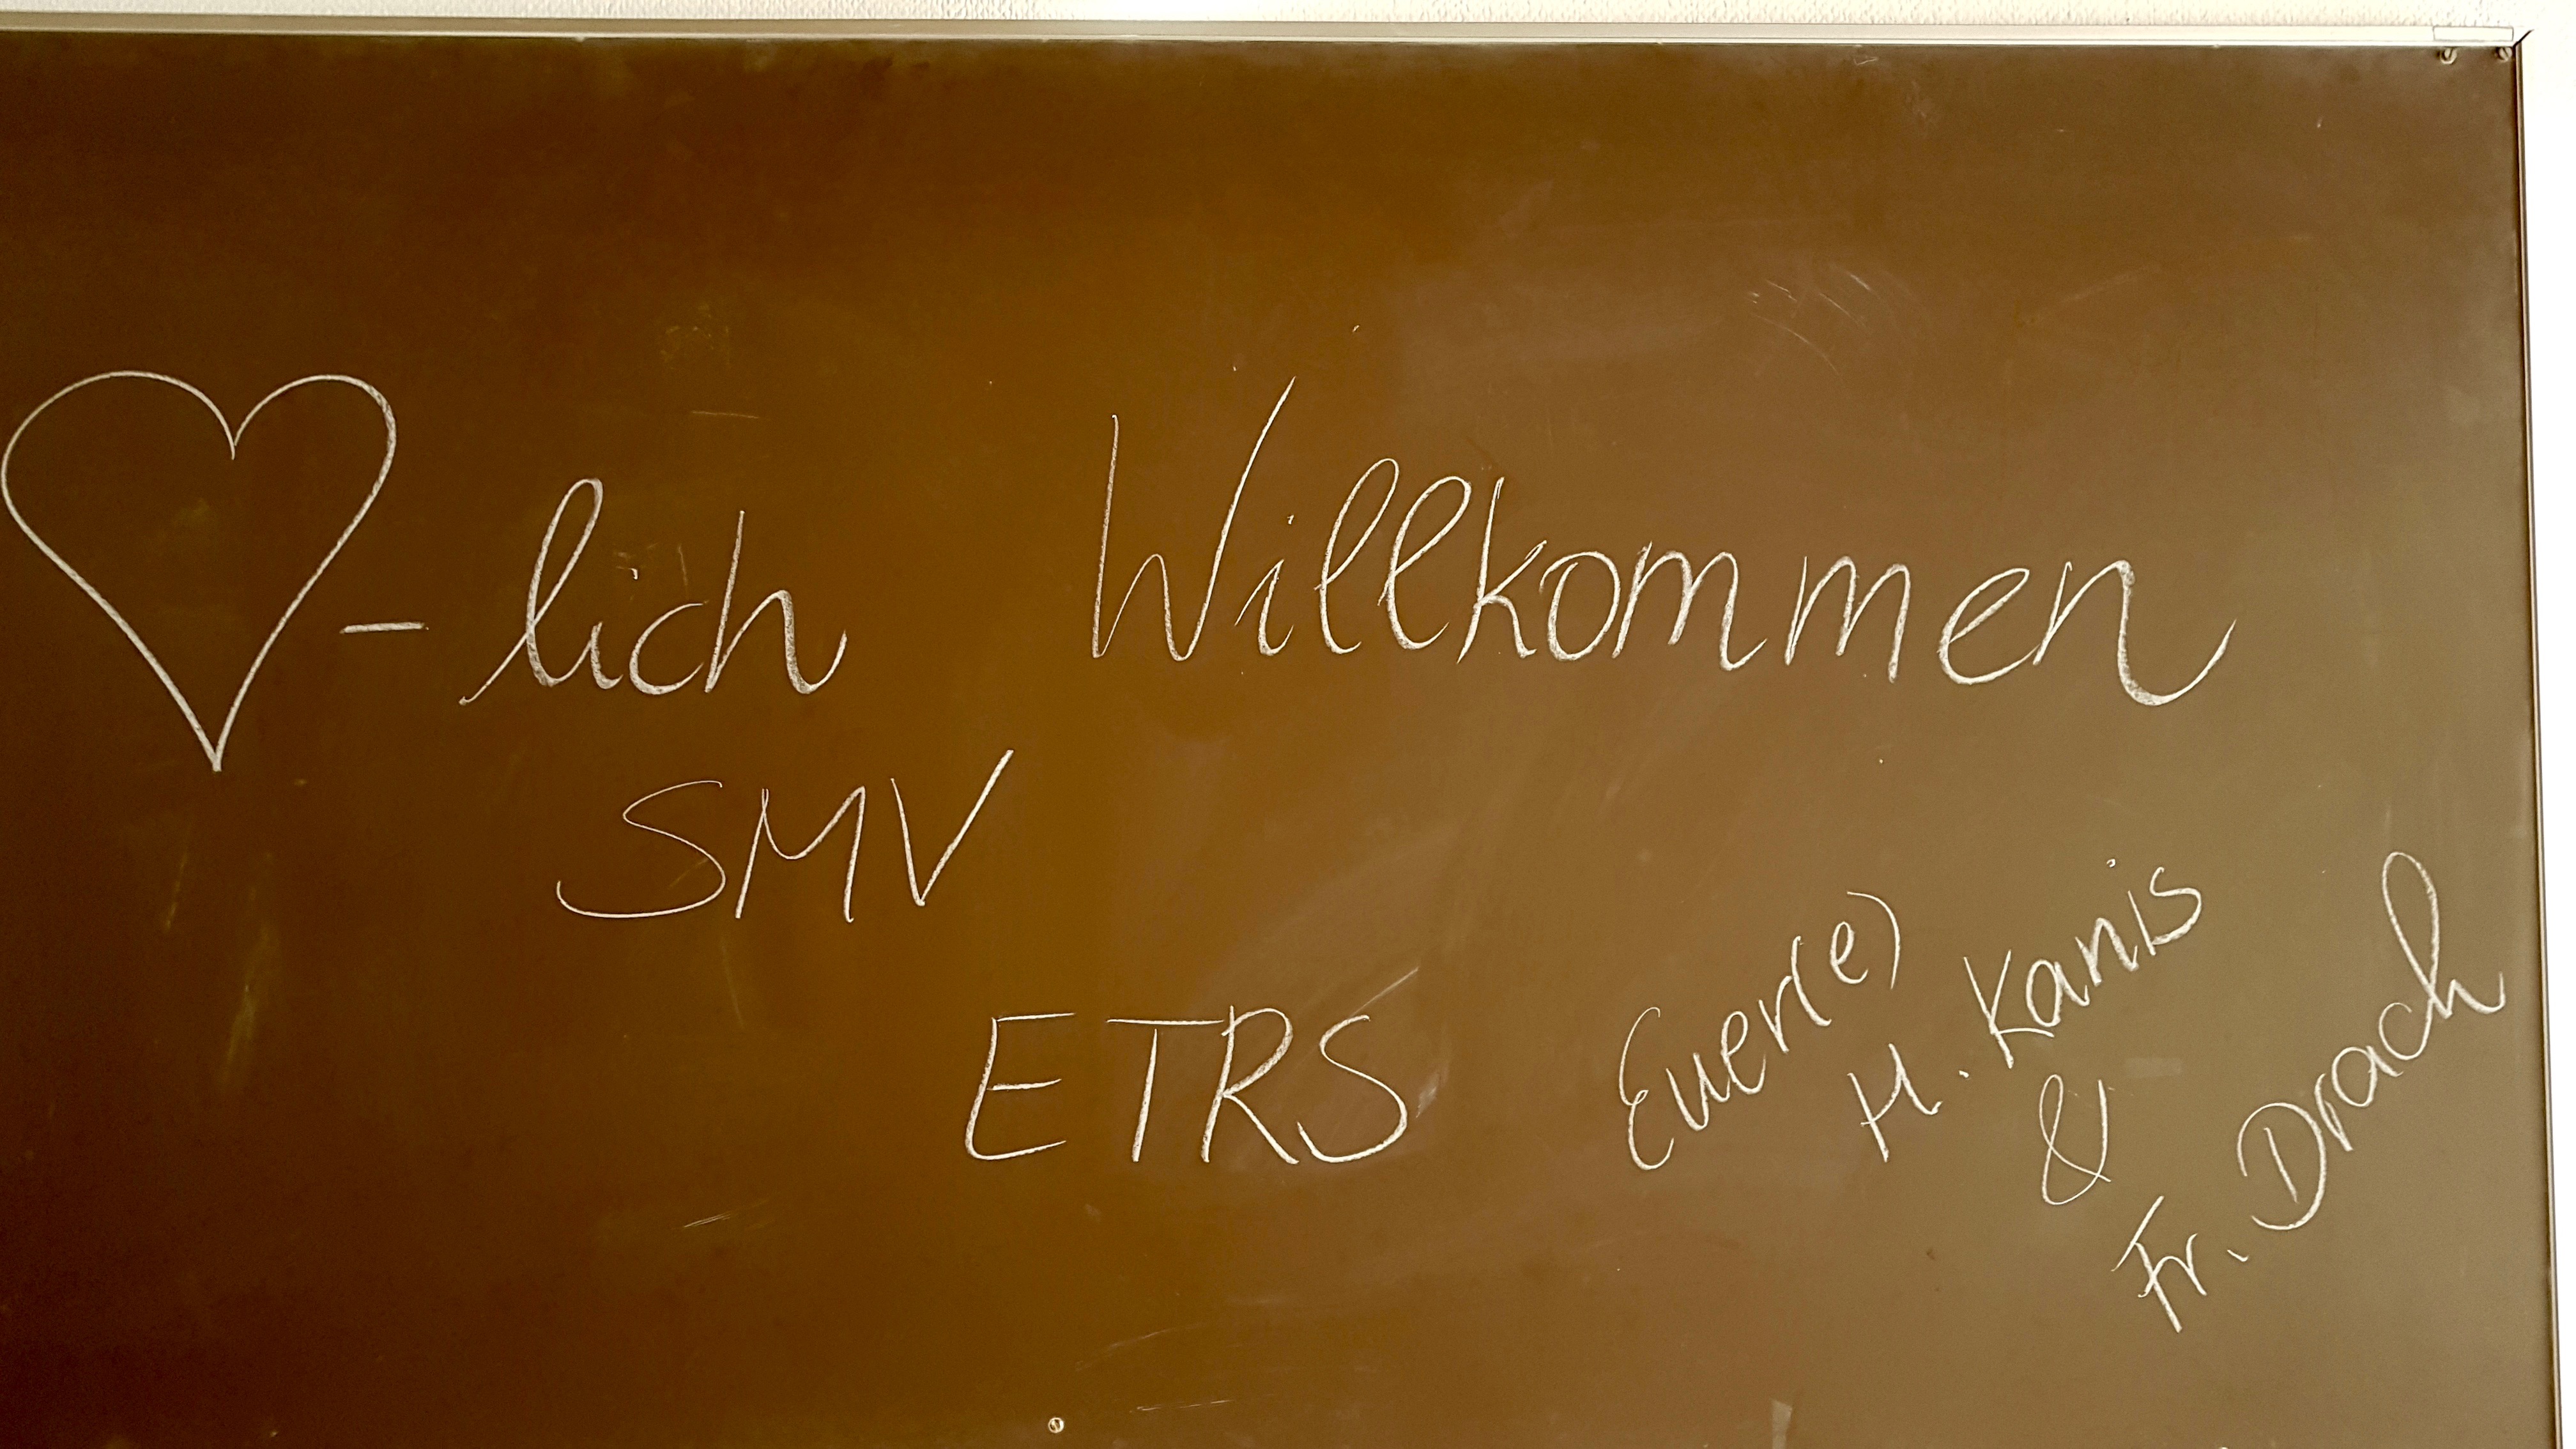 ♡-lich Willkommen
SMV
ETRS
Euer(e)
H. Kanis
&
Fr. Drach